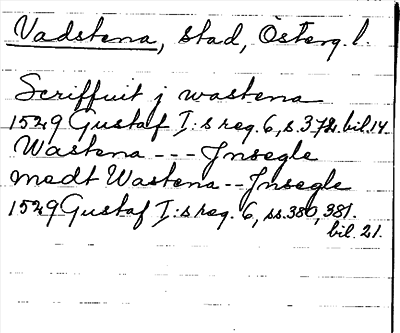 Vadstena, stad, Österg. l.
Scriffuit j wastena
1529 Gustaf I:s reg. 6, s. 372. bil. 14.
Wastena --- Jnsegle
medt Wastena -- Jnsegle
1529 Gustaf I:s reg. 6, ss. 380, 381.
bil. 21.